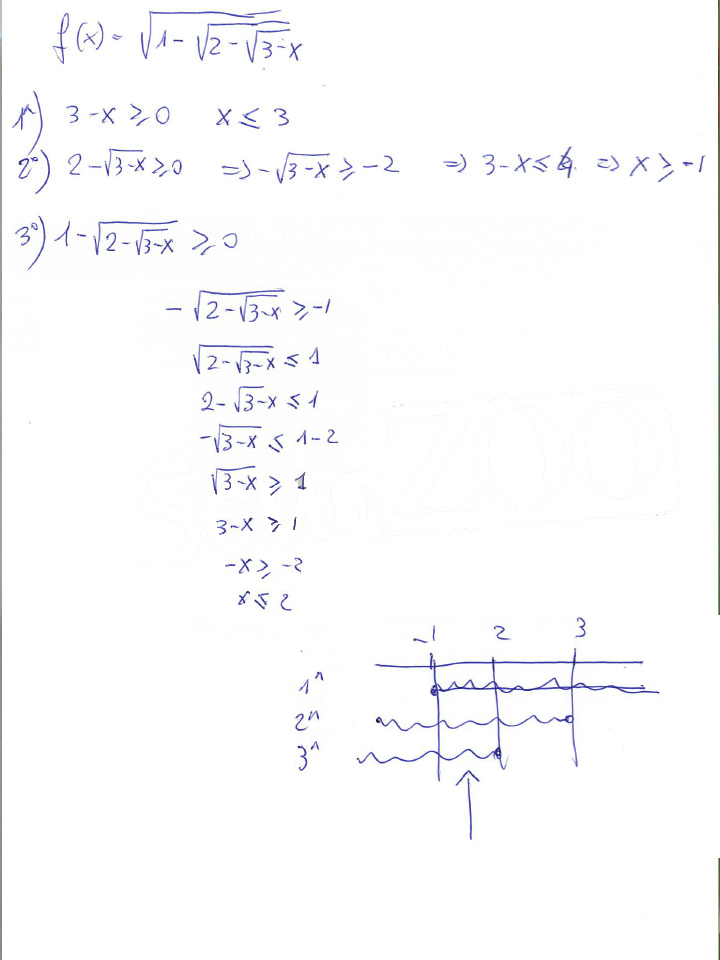 f(x) = √(1-√(2-√(3-x)))
1^) 3-x ≥ 0 x ≤ 3
2°) 2-√(3-x) ≥ 0 => -√(3-x) ≥ -2 => 3-x ≤ 4 => x ≥ -1
3°) 1-√(2-√(3-x)) ≥ 0
-√(2-√(3-x)) ≥ -1
√(2-√(3-x)) ≤ 1
2-√(3-x) ≤ 1
-√(3-x) ≤ 1-2
√(3-x) ≥ 1
3-x ≥ 1
-x ≥ -2
x ≤ 2
-1 2 3
1^
2^
3^